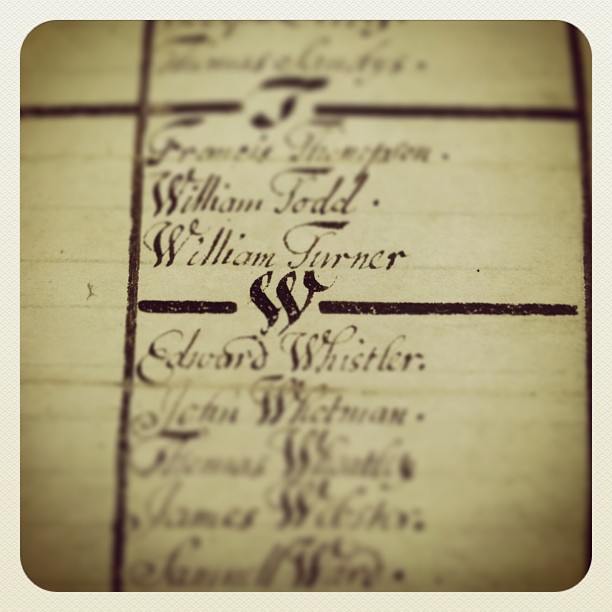 Thomas
T
Francis Thompson.
William Todd.
William Turner
W
Edward Whistler.
John Whotman.
Thomas
James Webster.
Samuell Ward.